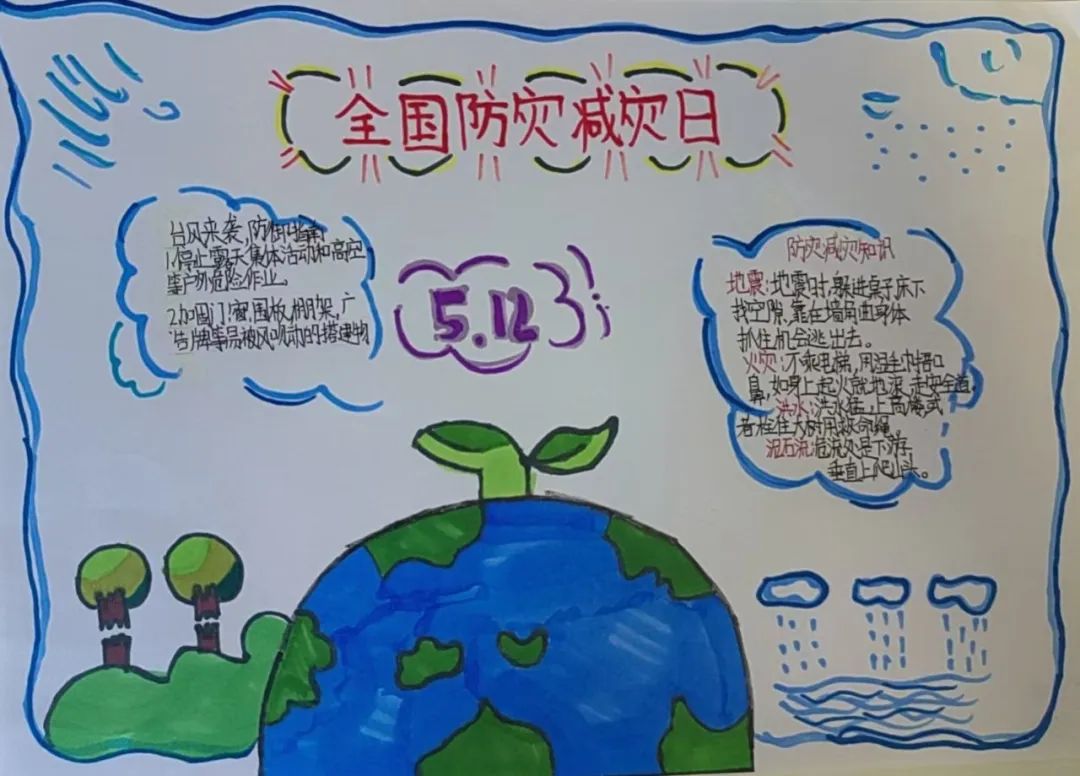 全国防灾减灾日
台风来袭,防御指南
1.停止露天集体活动和高空
等户外危险作业。
2.加固门窗,围板,棚架,广
告牌等易被风吹动的搭建物
5.12
防灾减灾知识
地震:地震时,躲进桌子床下
找空隙,靠在墙角曲身体
抓住机会逃出去。
火灾:不乘电梯,用湿毛巾捂口
鼻,如身上起火就地滚,走安全道。
洪水:洪水猛,上高楼,或
者拴住大树用救命绳。
泥石流:危流处是下游,
垂直上爬山头。